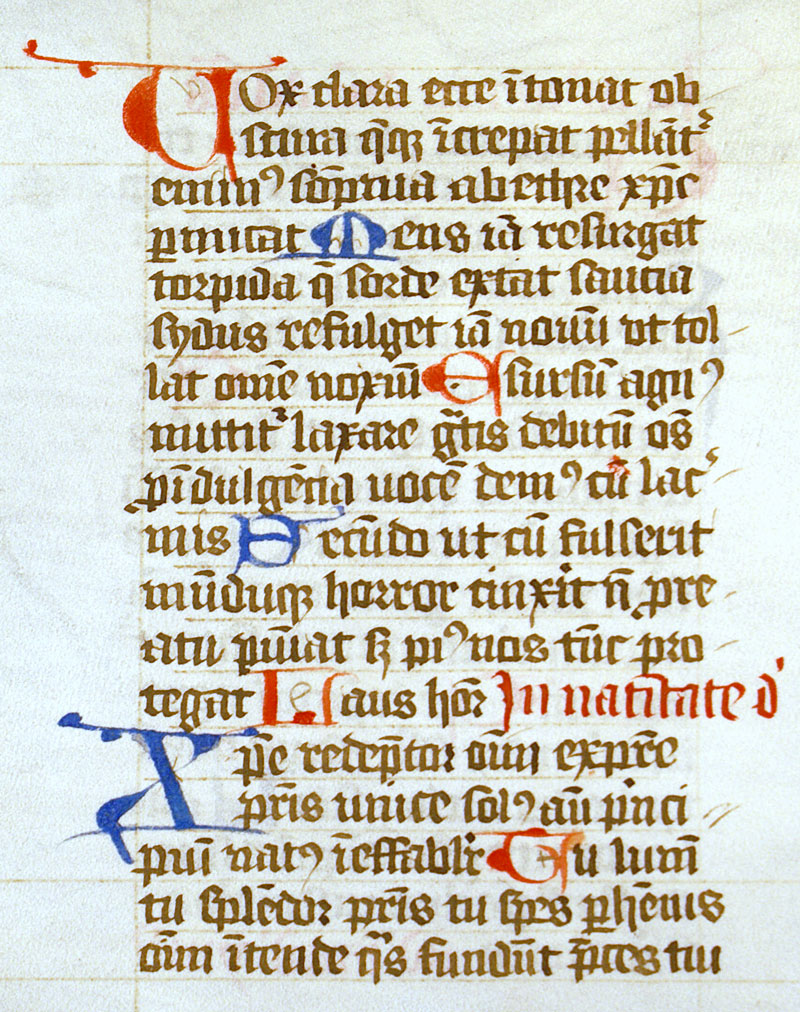 Uox clara ecce ītonat ob
scura q̄q̨ īcrepat pellāt᷑
emin⁹ sōpnia ab ethre xp̄c
ꝑmicat Mens iā resurgat
torpida q̄ sorde extat saucia
sydus refulget iā nouū vt tol-
lat om̄e noxiū E sursū agn⁹
mittit᷑ laxare gͣtis debitū om̄s
ꝓ īdulgēcia uocē dem⁹ cū lac᷑-
mis Secūdo ut cū fulserit
mūduq̨ horror cinxit nō ꝓ re-
atu puīat sꝫ pi⁹ nos tūc pro-
tegat Laus hōr In natitate d'
Xp̄e redēptor oīm ex pr̄e
pr̄is unice sol⁹ an̄ pͥnci-
piū nat⁹ īeffabĺr Tu lumē
tu splēdor pr̄is tu spes ꝑhēnis
oīm ītende qͣs fundūt p̄ces tui